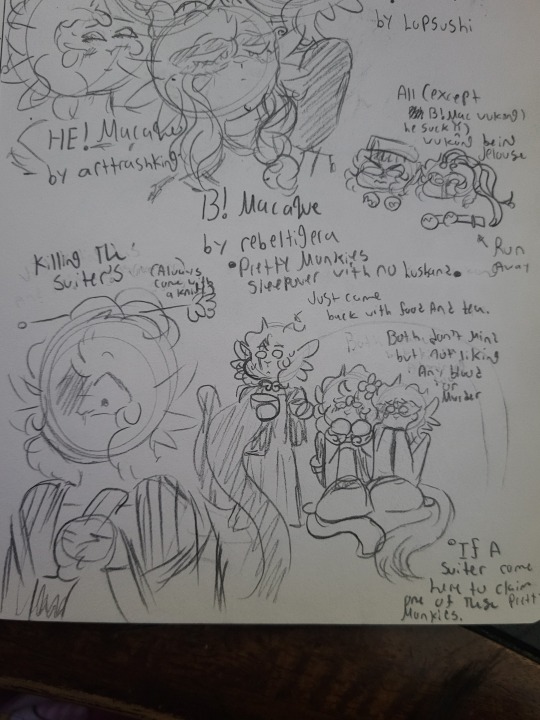 by Lopsushi
HE! Macaque
by arttrashking
All (except
B! Mac vukong)
he suck!!)
vukong bein
Jelouse
Run
Away
B! Macaque
by rebeltigera
• Pretty Monkies
sleepover with no husbans •
Killing The
Suiter's
(Always
come with
a knife)
Just came
back with food And tea.
Both don't mind
but not liking
Any blood
or
Murder
• If A
Suiter come
here to claim
one of these Pretty
Monkies.